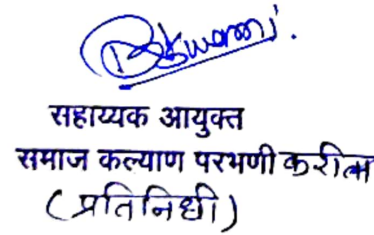 सहाय्यक आयुक्त
समाज कल्याण परभणी करीता
(प्रतिनिधी)